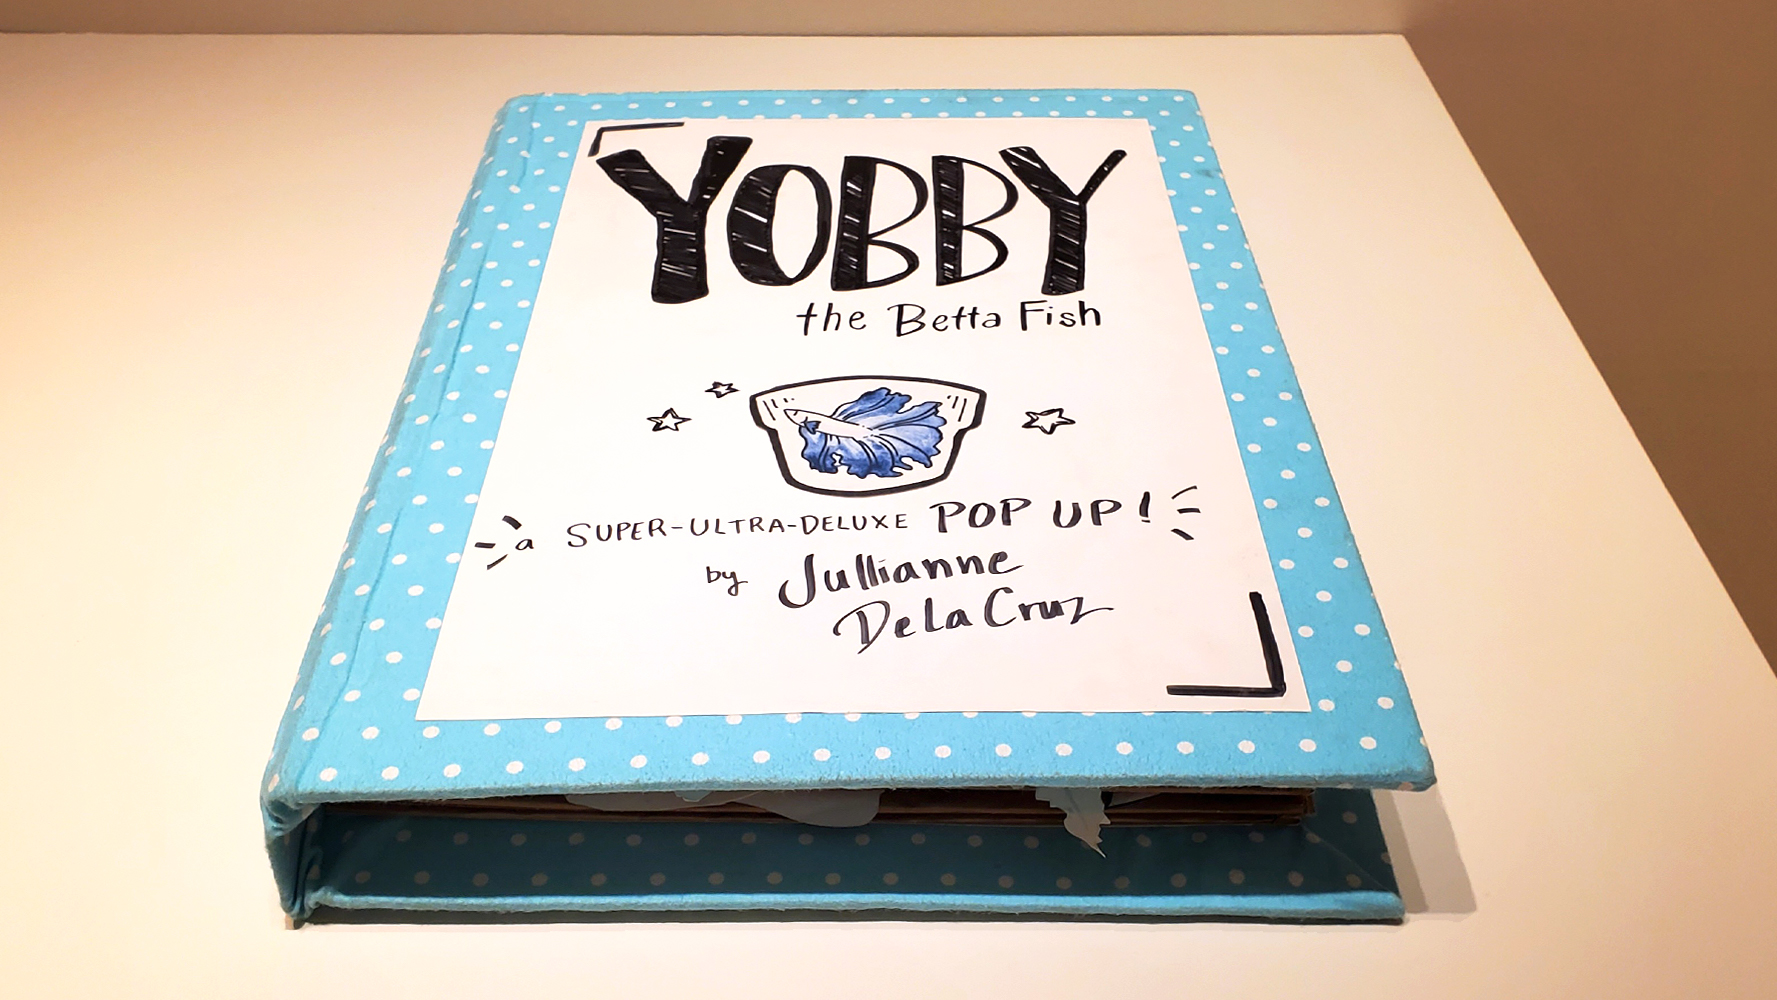 YOBBY
the Betta Fish
a SUPER-ULTRA-DELUXE POP UP!
by Jullianne
Dela Cruz